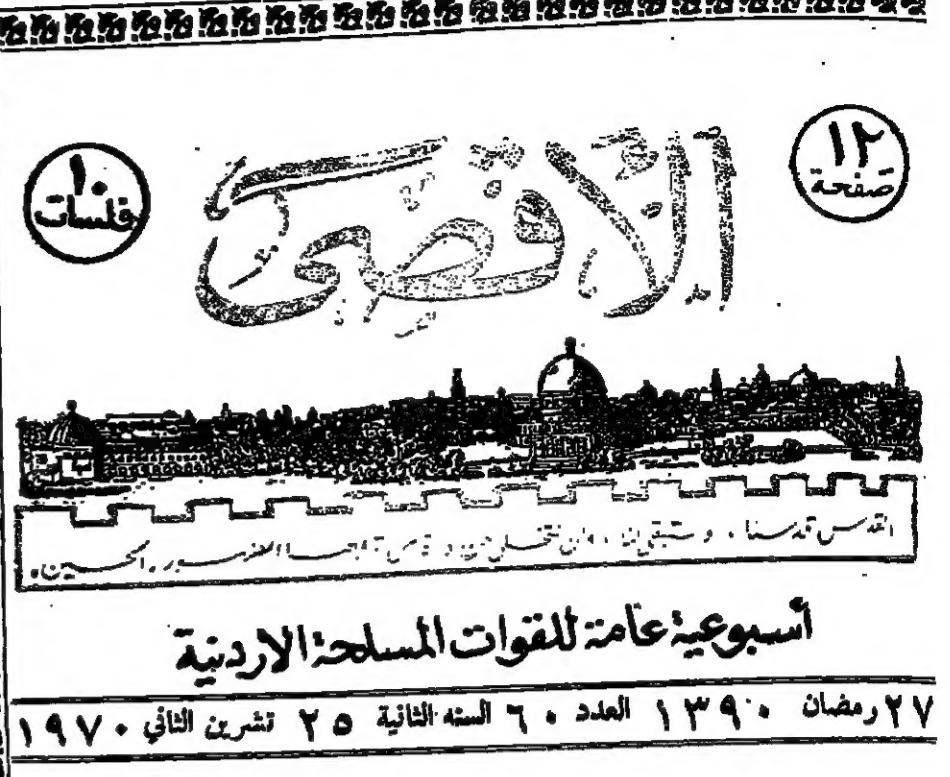 ١٢
صفحة
الأقصى
١٠
فلسات
القدس قدسنا، وستبقى لنا، ولن نتخلى عن الحسين.
أسبوعية عامة للقوات المسلحة الاردنية
٢٧ رمضان ١٣٩٠ العدد ٦٠ السنه الثانية ٢٥ تشرين الثاني ١٩٧٠